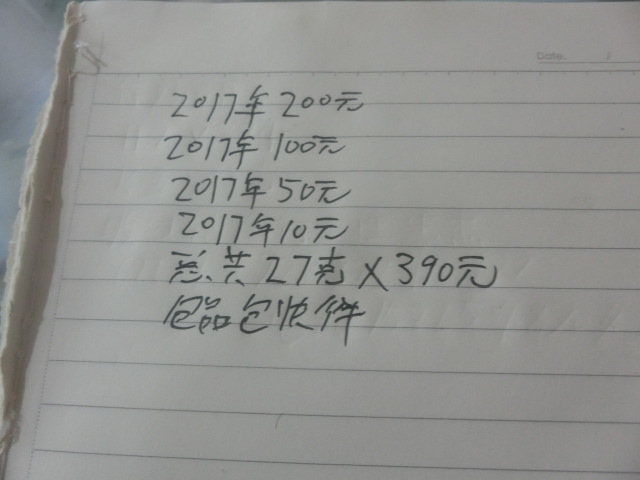 Date.
2017年 200元
2017年 100元
2017年 50元
2017年 10元
总共 27克 X 390元
包品包快件